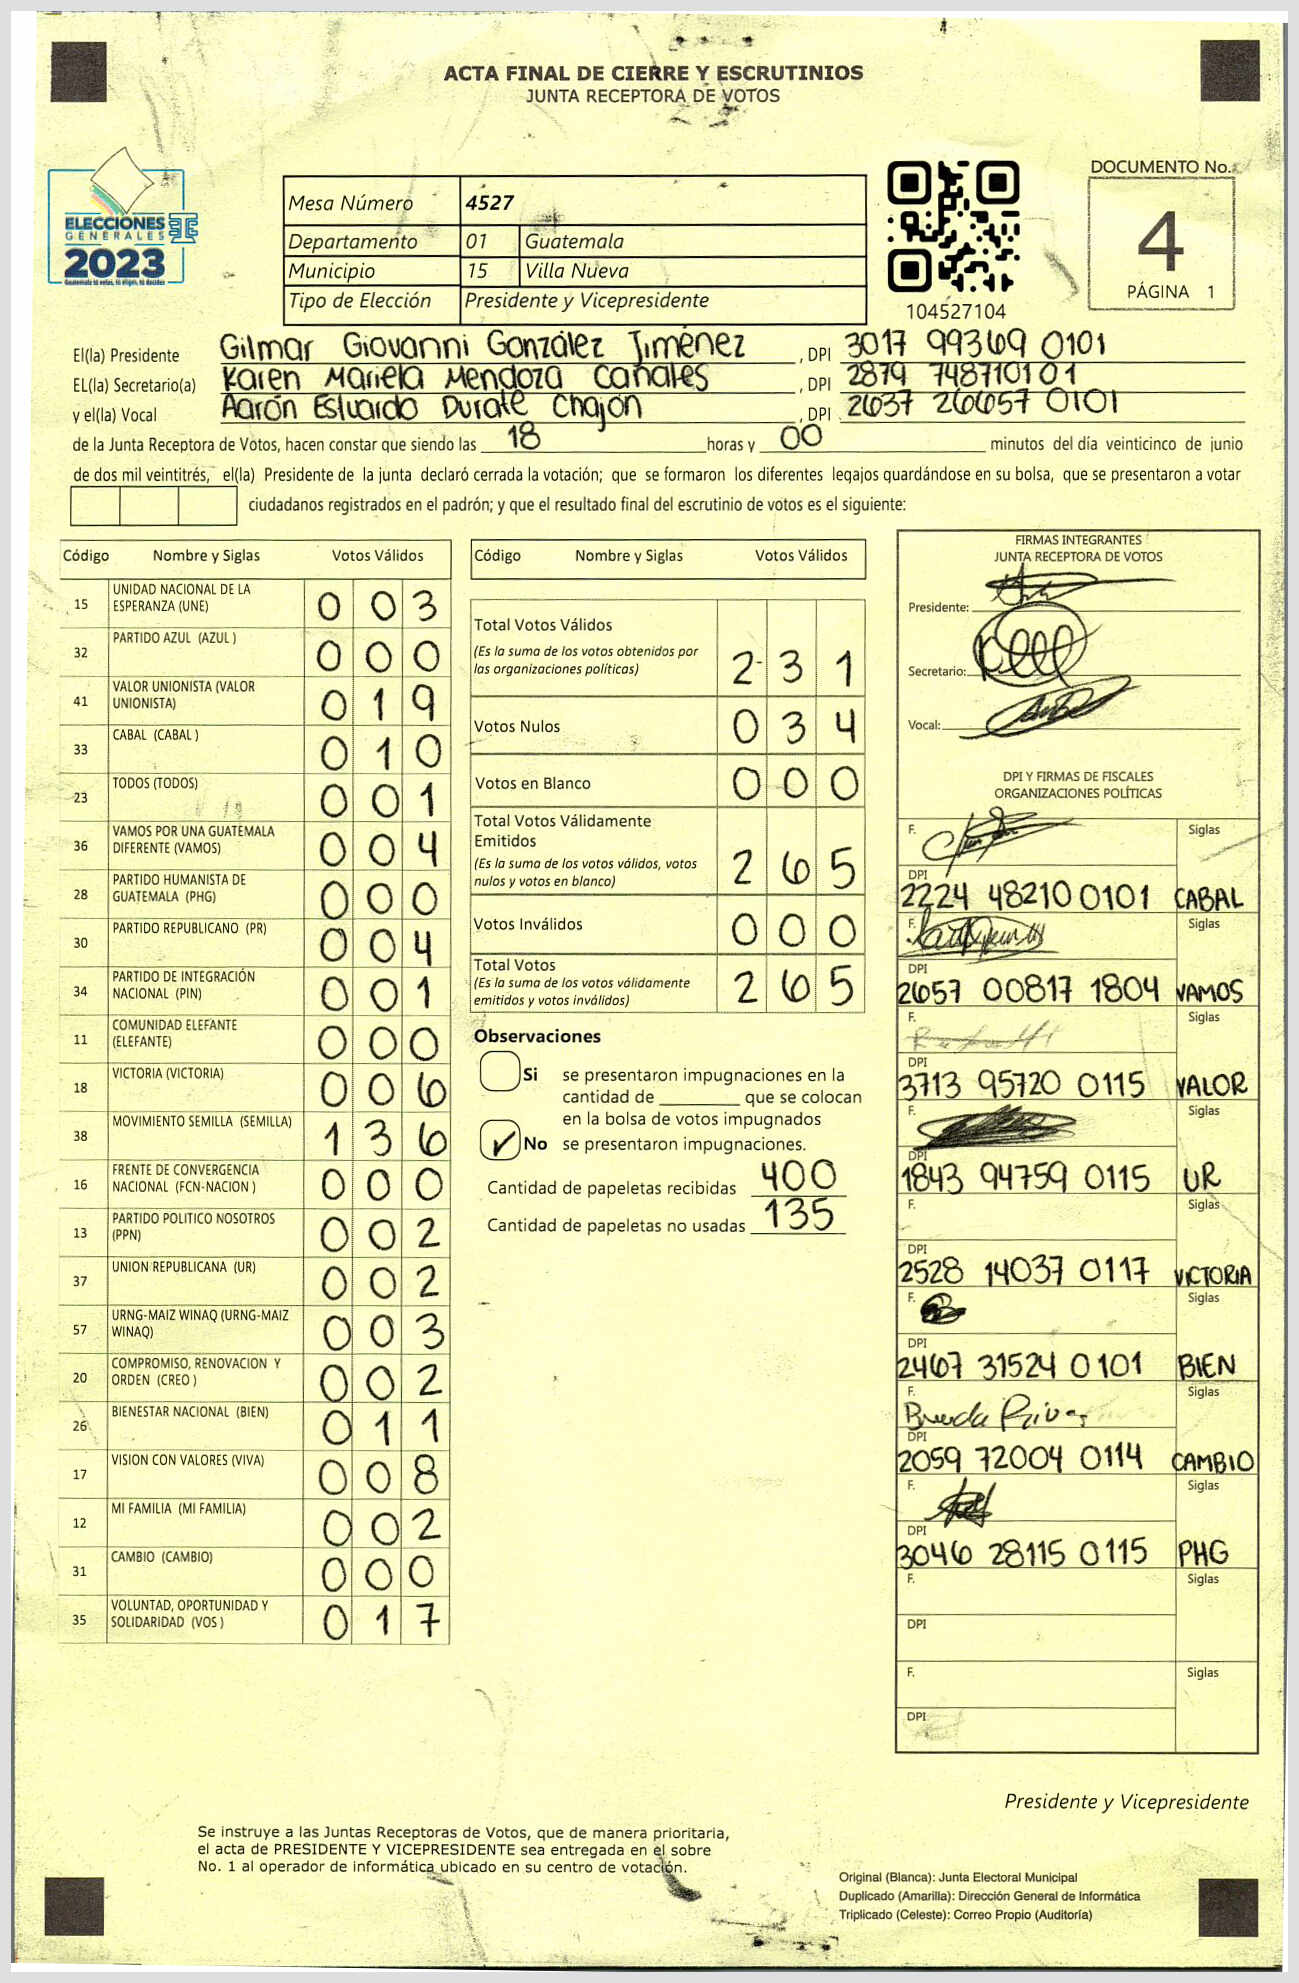 ACTA FINAL DE CIERRE Y ESCRUTINIOS
JUNTA RECEPTORA DE VOTOS
ELECCIONES
GENERALES
2023
Guatemala tú votas, tú eliges, tú decides
Mesa Número 4527
Departamento 01 Guatemala
Municipio 15 Villa Nueva
Tipo de Elección Presidente y Vicepresidente
104527104
DOCUMENTO No.
4
PÁGINA 1
El(la) Presidente Gilmar Giovanni González Jiménez, DPI 3017 99369 0101
EL(la) Secretario(a) Karen Mariela Mendoza Canales, DPI 2879 74871 0101
y el(la) Vocal Aarón Estuardo Durate Chajón, DPI 2637 26657 0101
de la Junta Receptora de Votos, hacen constar que siendo las 18 horas y 00 minutos del día veinticinco de junio
de dos mil veintitrés, el(la) Presidente de la junta declaró cerrada la votación; que se formaron los diferentes legajos guardándose en su bolsa, que se presentaron a votar
ciudadanos registrados en el padrón; y que el resultado final del escrutinio de votos es el siguiente:
Código Nombre y Siglas Votos Válidos
15 UNIDAD NACIONAL DE LA ESPERANZA (UNE) 0 0 3
32 PARTIDO AZUL (AZUL ) 0 0 0
41 VALOR UNIONISTA (VALOR UNIONISTA) 0 1 9
33 CABAL (CABAL ) 0 1 0
23 TODOS (TODOS) 0 0 1
36 VAMOS POR UNA GUATEMALA DIFERENTE (VAMOS) 0 0 4
28 PARTIDO HUMANISTA DE GUATEMALA (PHG) 0 0 0
30 PARTIDO REPUBLICANO (PR) 0 0 4
34 PARTIDO DE INTEGRACIÓN NACIONAL (PIN) 0 0 1
11 COMUNIDAD ELEFANTE (ELEFANTE) 0 0 0
18 VICTORIA (VICTORIA) 0 0 6
38 MOVIMIENTO SEMILLA (SEMILLA) 1 3 6
16 FRENTE DE CONVERGENCIA NACIONAL (FCN-NACION ) 0 0 0
13 PARTIDO POLITICO NOSOTROS (PPN) 0 0 2
37 UNION REPUBLICANA (UR) 0 0 2
57 URNG-MAIZ WINAQ (URNG-MAIZ WINAQ) 0 0 3
20 COMPROMISO, RENOVACION Y ORDEN (CREO ) 0 0 2
26 BIENESTAR NACIONAL (BIEN) 0 1 1
17 VISION CON VALORES (VIVA) 0 0 8
12 MI FAMILIA (MI FAMILIA) 0 0 2
31 CAMBIO (CAMBIO) 0 0 0
35 VOLUNTAD, OPORTUNIDAD Y SOLIDARIDAD (VOS ) 0 1 7
Código Nombre y Siglas Votos Válidos
Total Votos Válidos
(Es la suma de los votos obtenidos por
las organizaciones políticas) 2 3 1
Votos Nulos 0 3 4
Votos en Blanco 0 0 0
Total Votos Válidamente
Emitidos
(Es la suma de los votos válidos, votos
nulos y votos en blanco) 2 6 5
Votos Inválidos 0 0 0
Total Votos
(Es la suma de los votos válidamente
emitidos y votos inválidos) 2 6 5
Observaciones
Si se presentaron impugnaciones en la
cantidad de ________ que se colocan
en la bolsa de votos impugnados
✓ No se presentaron impugnaciones.
Cantidad de papeletas recibidas 400
Cantidad de papeletas no usadas 135
FIRMAS INTEGRANTES
JUNTA RECEPTORA DE VOTOS
Presidente:
Secretario:
Vocal:
DPI Y FIRMAS DE FISCALES
ORGANIZACIONES POLÍTICAS
F. Siglas
DPI
2224 48210 0101 CABAL
F. Siglas
DPI
2657 00817 1804 VAMOS
F. Siglas
DPI
3713 95720 0115 VALOR
F. Siglas
DPI
1843 94759 0115 UR
F. Siglas
DPI
2528 14037 0117 VICTORIA
F. Siglas
DPI
2467 31524 0101 BIEN
F. Brenda Rivas Siglas
DPI
2059 72004 0114 CAMBIO
F. Siglas
DPI
3046 28115 0115 PHG
F. Siglas
DPI
F. Siglas
DPI
Presidente y Vicepresidente
Se instruye a las Juntas Receptoras de Votos, que de manera prioritaria,
el acta de PRESIDENTE Y VICEPRESIDENTE sea entregada en el sobre
No. 1 al operador de informática ubicado en su centro de votación.
Original (Blanca): Junta Electoral Municipal
Duplicado (Amarilla): Dirección General de Informática
Triplicado (Celeste): Correo Propio (Auditoría)